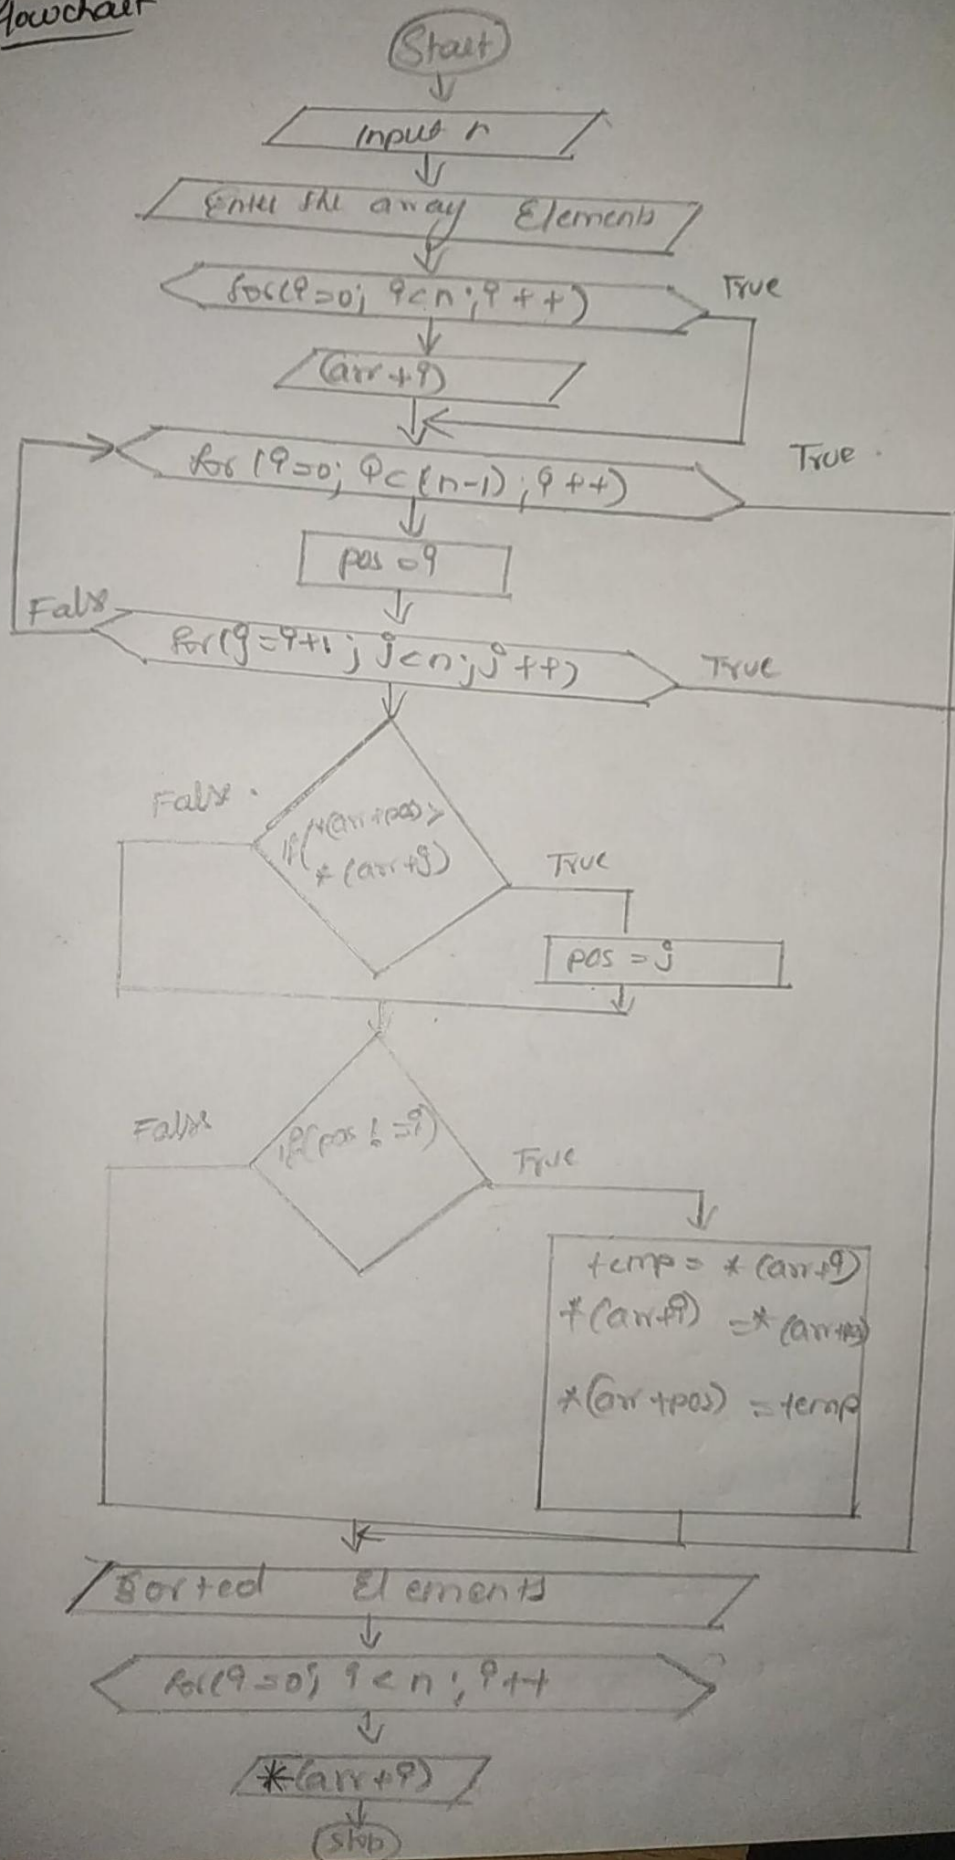 flowchart
Start
Input n
Enter the array Elements
for(i=0; i<n; i++)
True
(arr+i)
for (i=0; i<(n-1); i++)
True
pos=i
False
for(j=i+1; j<n; j++)
True
False
if(*(arr+pos)>
*(arr+j)
True
pos=j
False
if(pos!=i)
True
temp=*(arr+i)
*(arr+i)=*(arr+pos)
*(arr+pos)=temp
Sorted Elements
for(i=0; i<n; i++
*(arr+i)
Stop